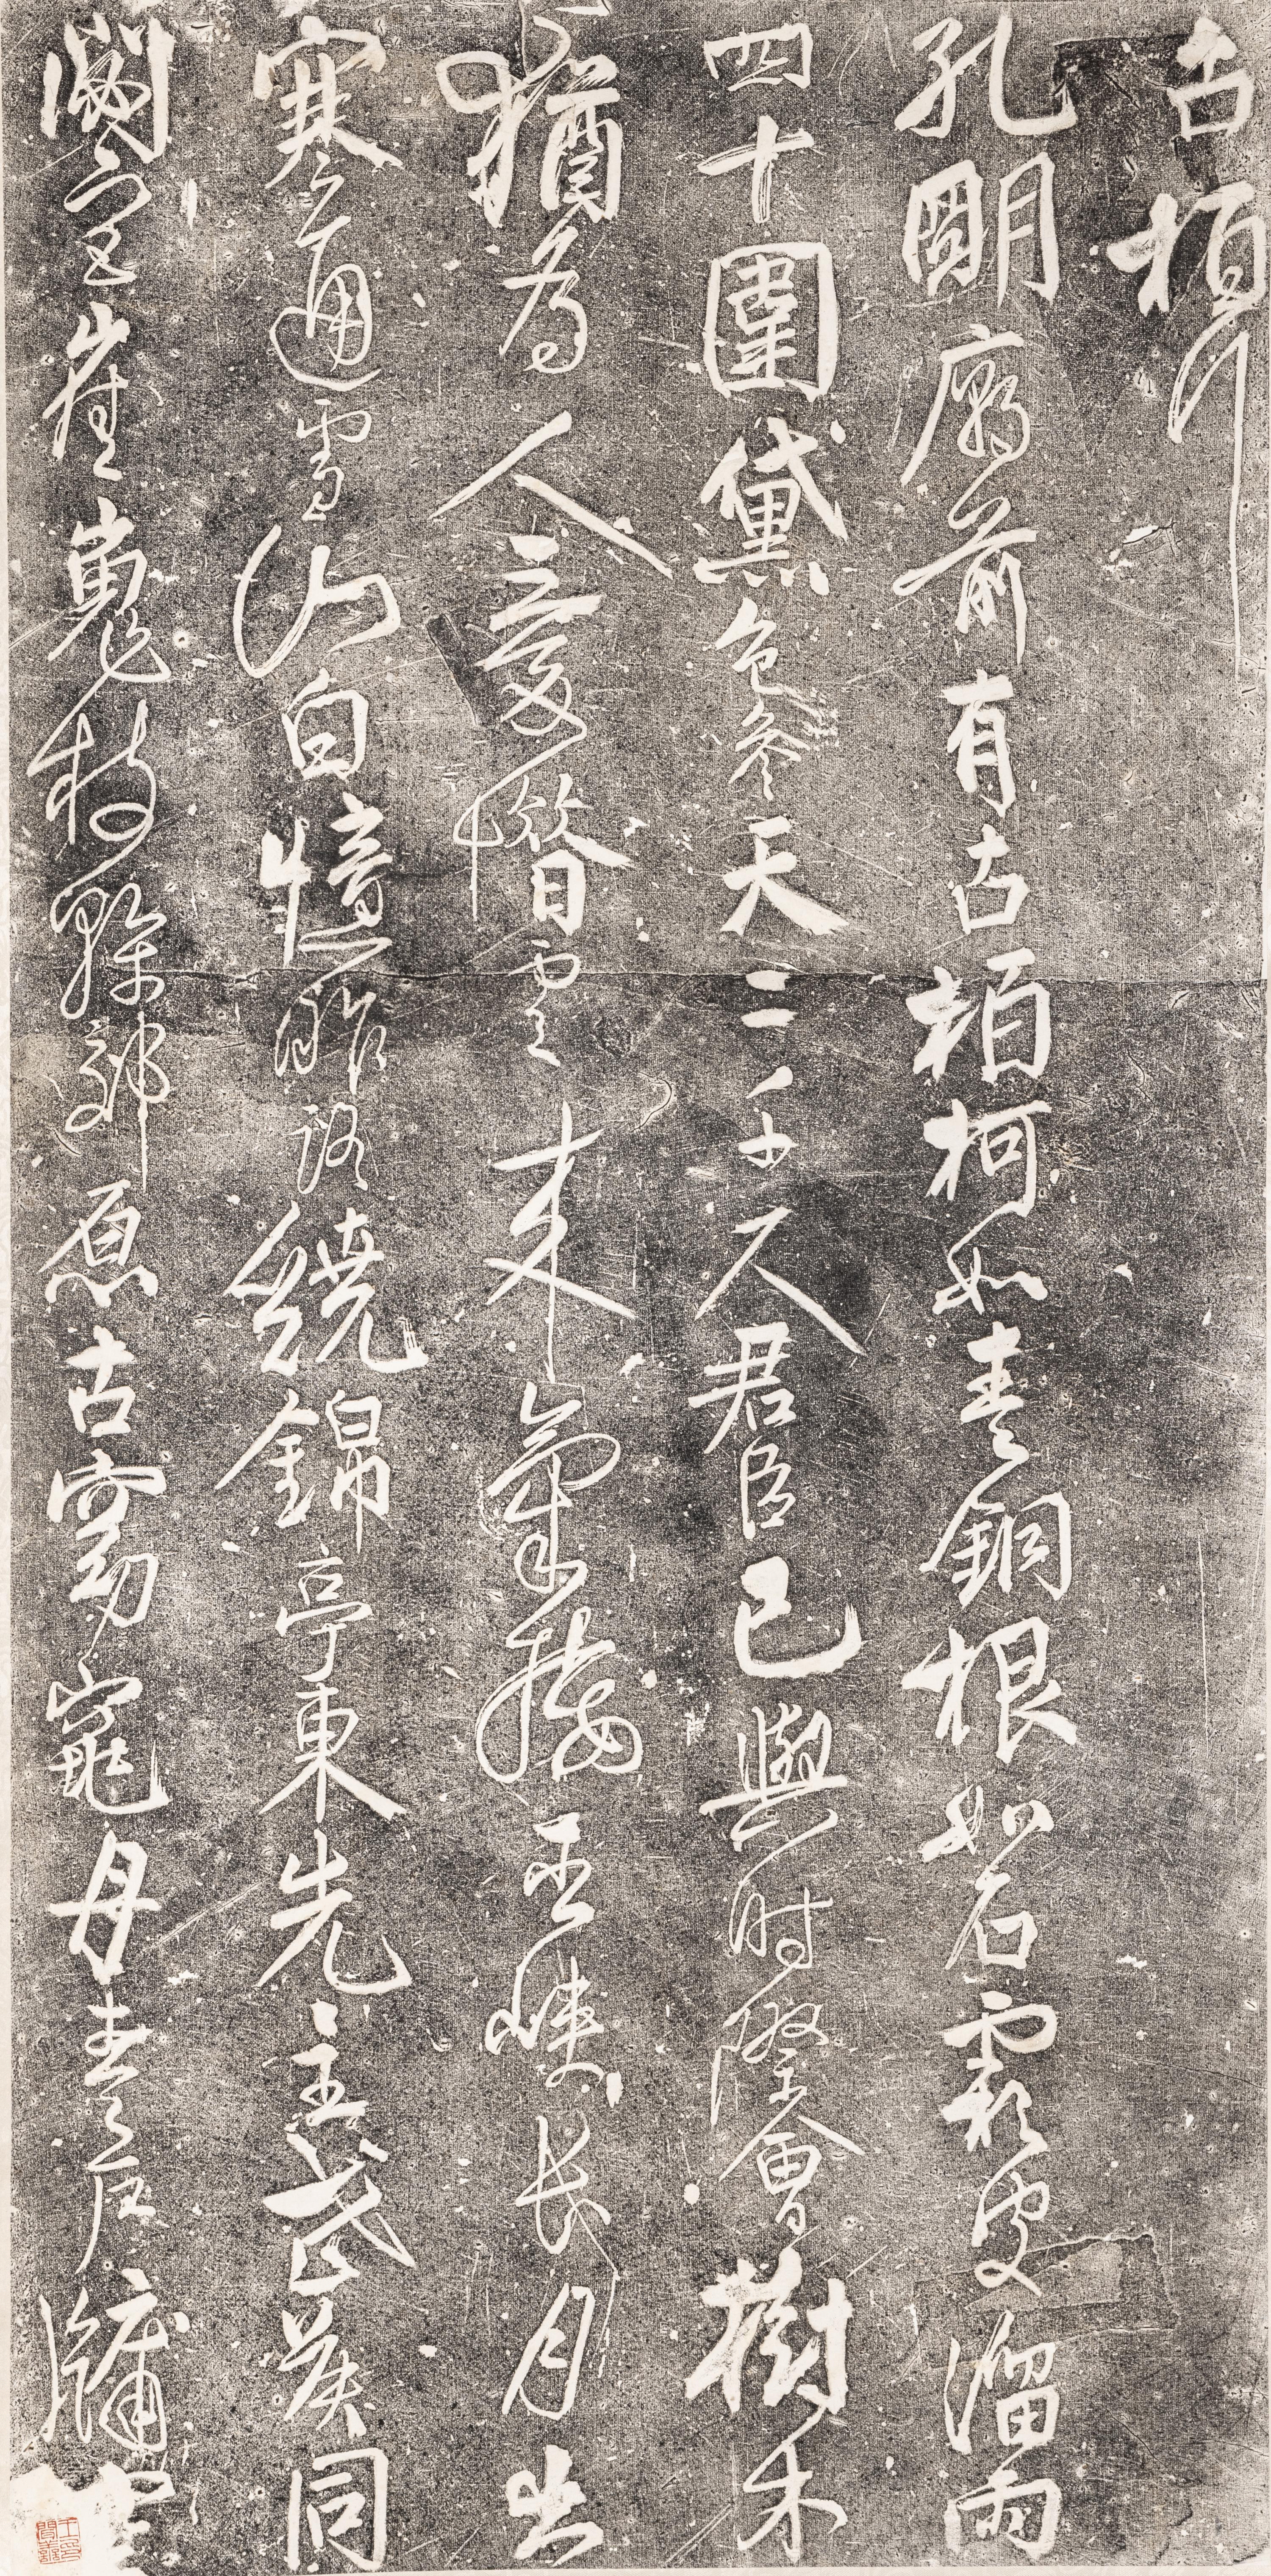 古柏行
孔朙廟前有古柏柯如青銅根如石霜皮溜雨
四十圍黛色參天二千尺君臣已與時際會樹木
猶為人愛惜雲來氣接巫峽長月出
寒通雪山白憶昨路繞錦亭東先主武侯同
閟宮崔嵬枝幹郊原古窈窕丹青戶牖空